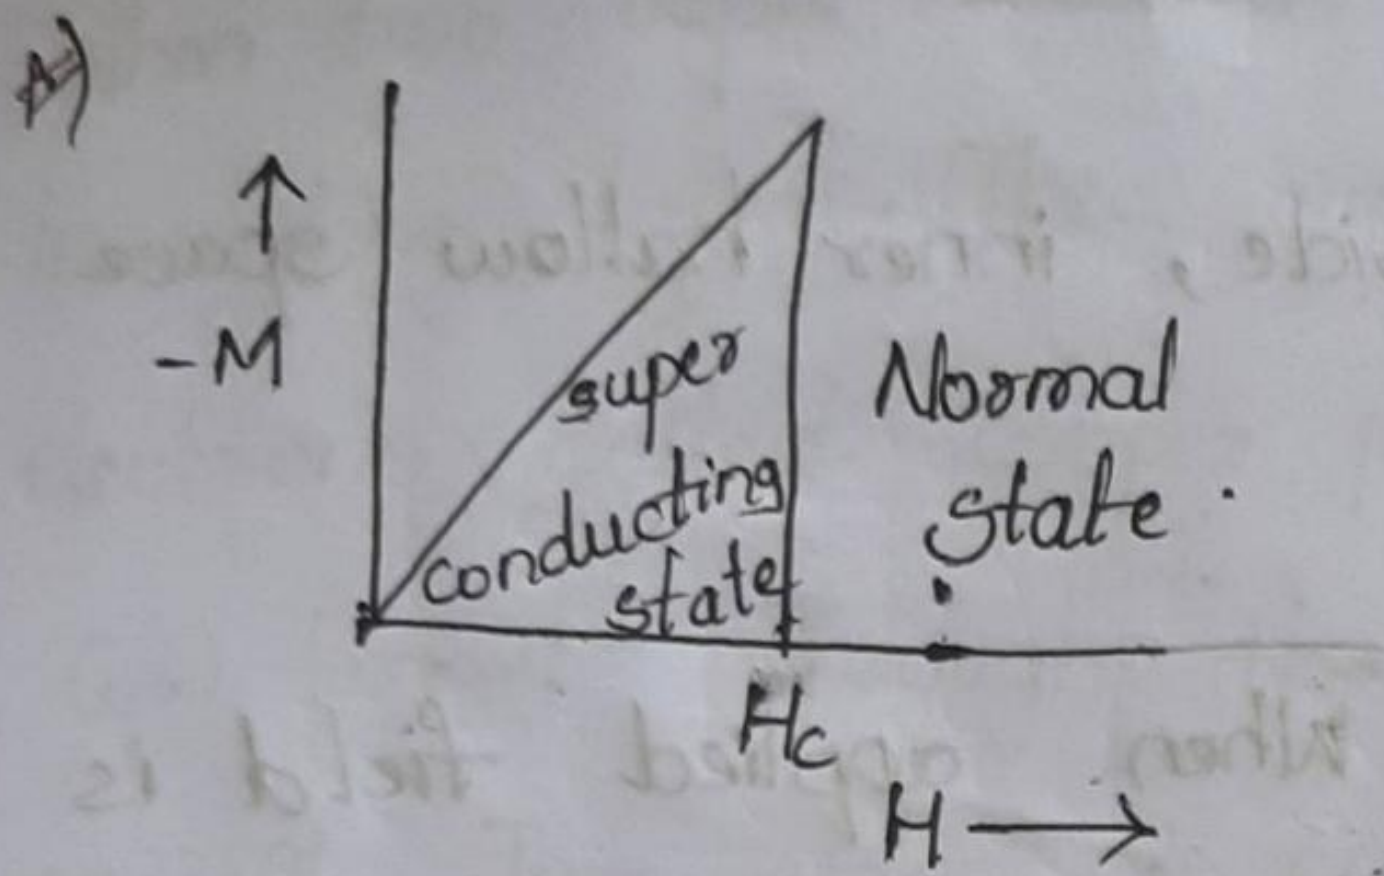 A)
↑
-M
super
conducting
state
Normal
state.
Hc
H →